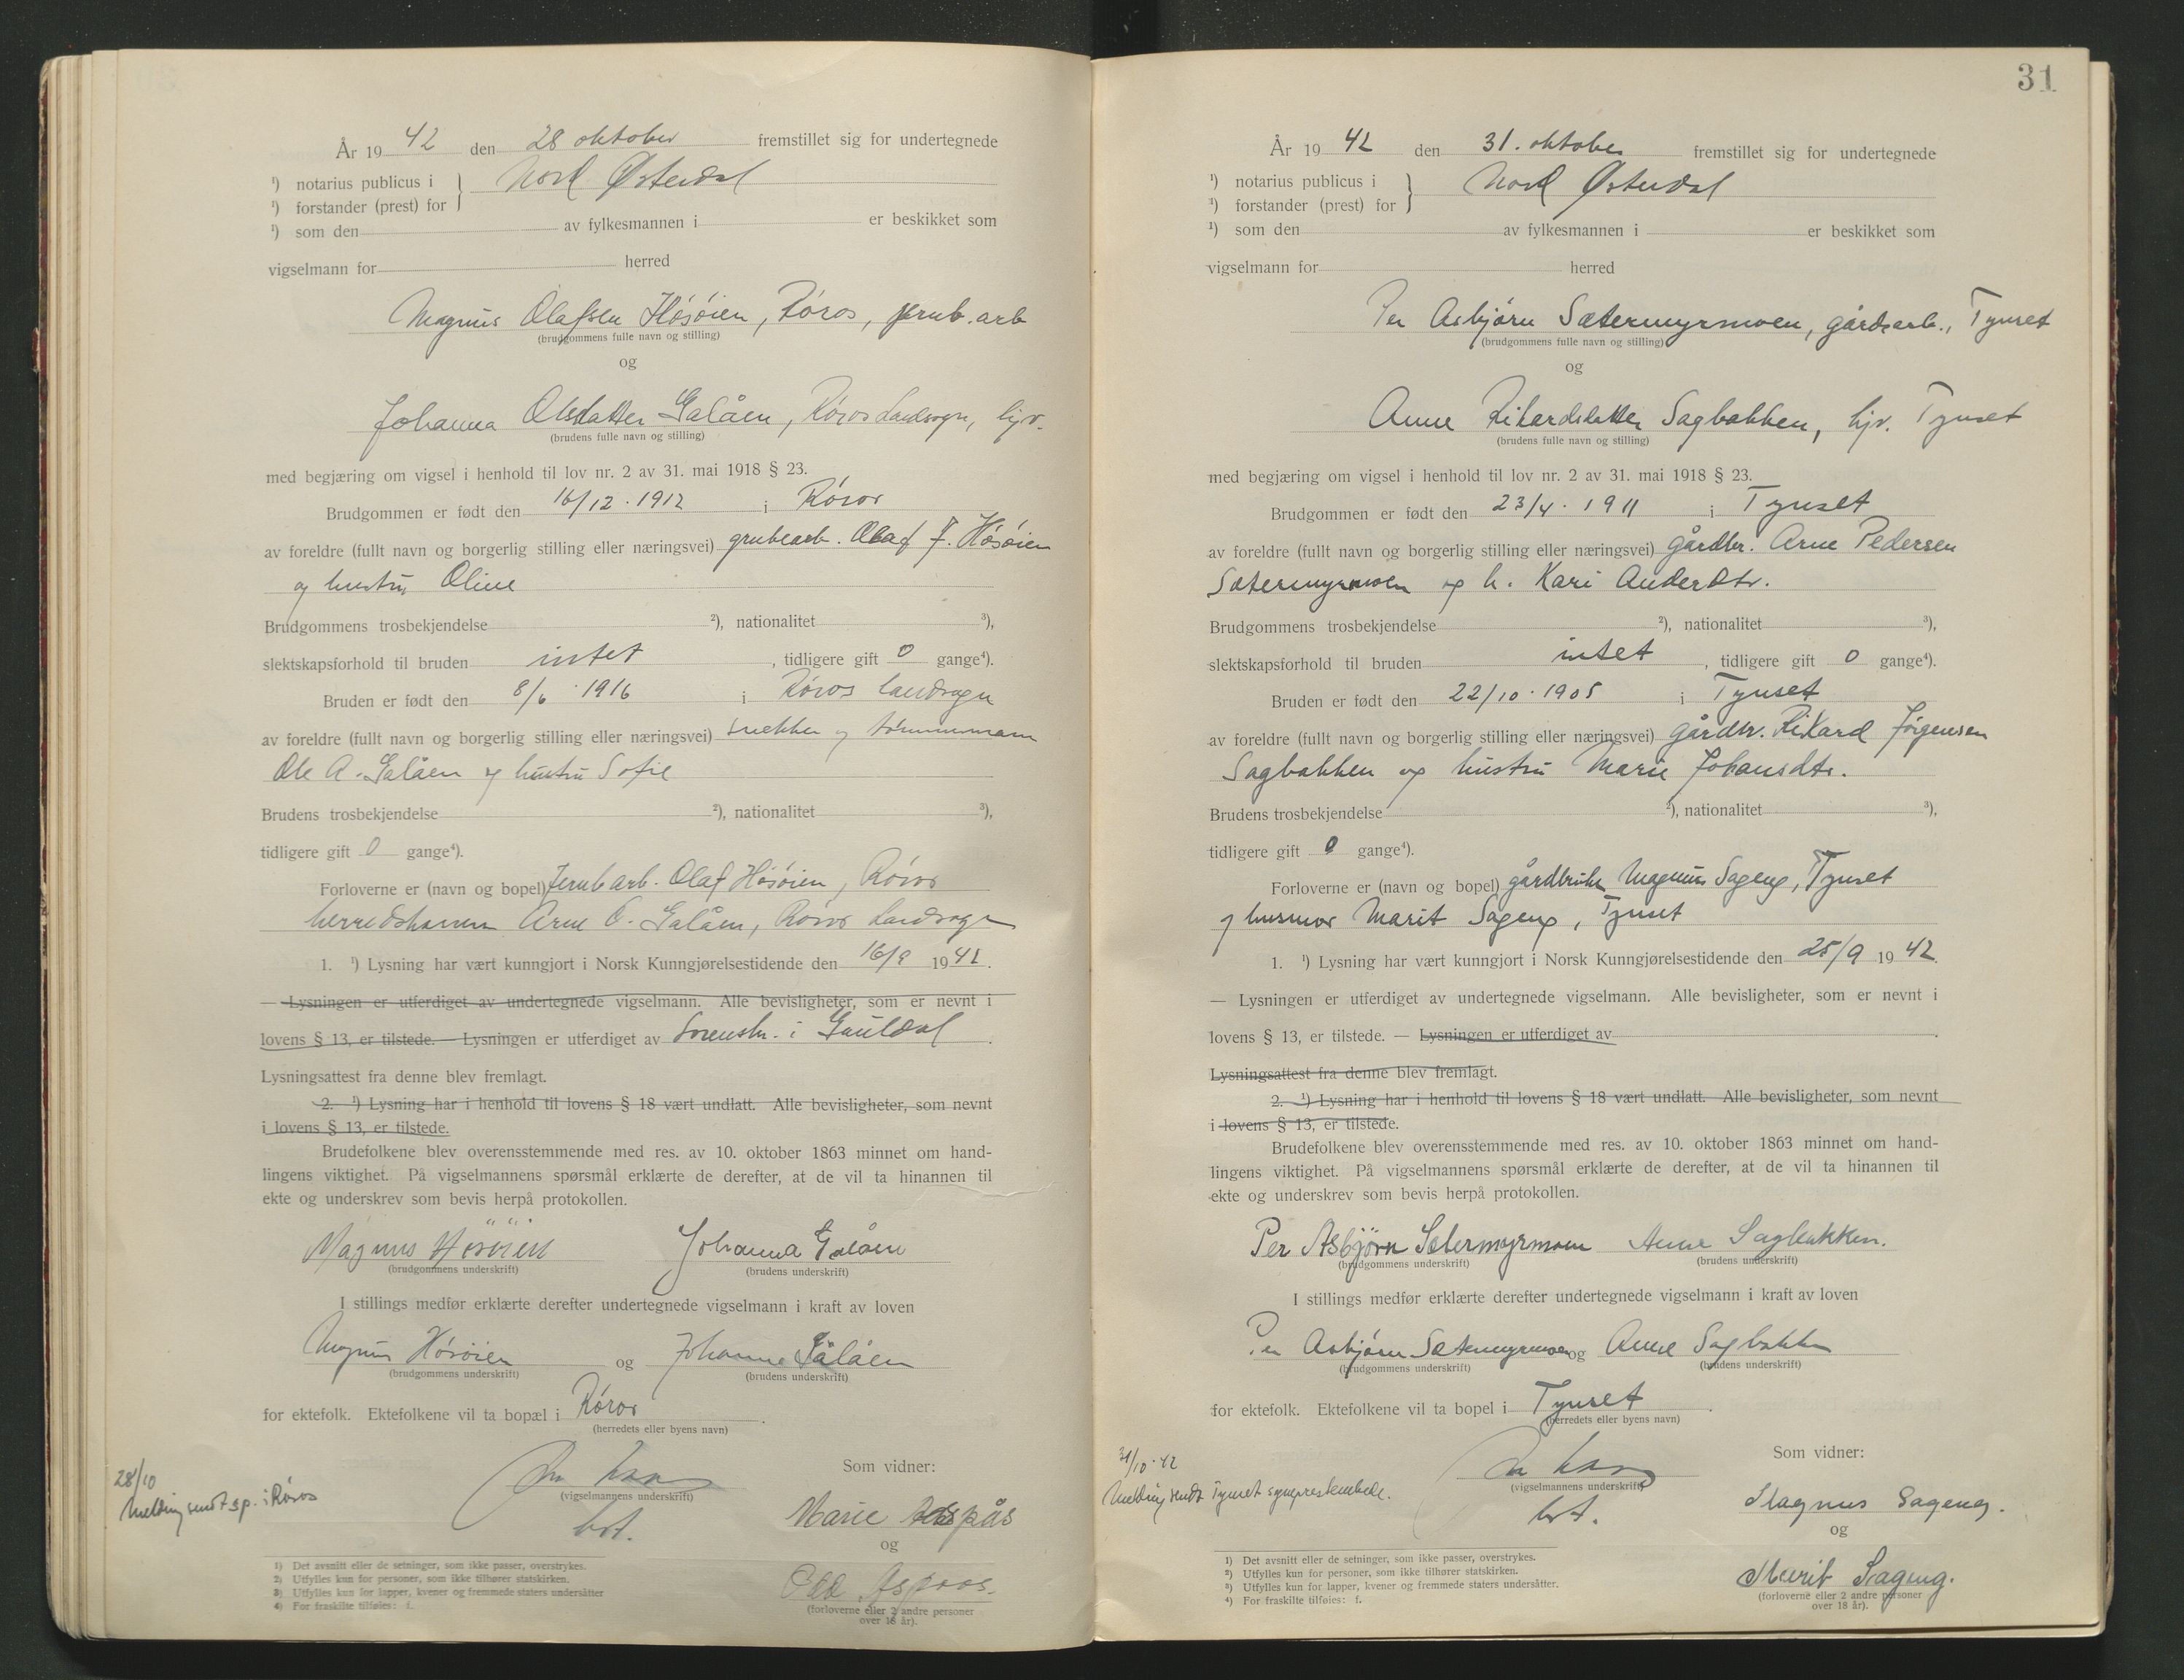 År 19 42 den 28 oktober fremstillet sig for undertegnede
¹) notarius publicus i } Nord Østerdal
¹) forstander (prest) for
¹) som den av fylkesmannen i er beskikket som
vigselmann for herred
Magnus Olafsen Høsøien, Røros, jernb.arb
(brudgommens fulle navn og stilling)
og
Johanna Olsdatter Galåen, Røros Landsogn, hjv.
(brudens fulle navn og stilling)
med begjæring om vigsel i henhold til lov nr. 2 av 31. mai 1918 § 23.
Brudgommen er født den 16/12 . 1912 i Røros
av foreldre (fullt navn og borgerlig stilling eller næringsvei) grubearb. Olaf J. Høsøien
og hustru Oline
Brudgommens trosbekjendelse ²), nationalitet ³),
slektskapsforhold til bruden intet , tidligere gift 0 gange⁴).
Bruden er født den 8/6 . 1916 i Røros landsogn
av foreldre (fullt navn og borgerlig stilling eller næringsvei) snekker og tømmermann
Ole A. Galåen og hustru Sofie
Brudens trosbekjendelse ²), nationalitet ³),
tidligere gift 0 gange⁴).
Forloverne er (navn og bopel) Jernb arb. Olaf Høsøien, Røros
herredskasserer Arne O. Galåen, Røros Landsogn
1. ¹) Lysning har vært kunngjort i Norsk Kunngjørelsestidende den 16/9 19 42.
— Lysningen er utferdiget av undertegnede vigselmann. Alle bevisligheter, som er nevnt i
lovens § 13, er tilstede. — Lysningen er utferdiget av Sorenskr. i Gauldal .
Lysningsattest fra denne blev fremlagt.
2. ¹) Lysning har i henhold til lovens § 18 vært undlatt. Alle bevisligheter, som nevnt
i lovens § 13, er tilstede.
Brudefolkene blev overensstemmende med res. av 10. oktober 1863 minnet om hand-
lingens viktighet. På vigselmannens spørsmål erklærte de derefter, at de vil ta hinannen til
ekte og underskrev som bevis herpå protokollen.
Magnus Hösöien Johanna Galåen
(brudgommens underskrift) (brudens underskrift)
I stillings medfør erklærte derefter undertegnede vigselmann i kraft av loven
Magnus Høsøien og Johanna Galåen
(brudgommens underskrift) (brudens underskrift)
for ektefolk. Ektefolkene vil ta bopæl i Røros .
(herredets eller byens navn)
28/10
Melding sendt sp. i Røros
(vigselmannens underskrift)
bst.
Som vidner:
Marie Aspås
og
Odd Aspaas.
(forloverne eller 2 andre personer
over 18 år).
1) Det avsnitt eller de setninger, som ikke passer, overstrykes.
2) Utfylles kun for personer, som ikke tilhører statskirken.
3) Utfylles kun for lapper, kvener og fremmede staters undersåtter
4) For fraskilte tilføies: f.
31
År 19 42 den 31. oktober fremstillet sig for undertegnede
¹) notarius publicus i } Nord Østerdal
¹) forstander (prest) for
¹) som den av fylkesmannen i er beskikket som
vigselmann for herred
Per Asbjørn Sætermyrmoen, gårdsarb., Tynset
(brudgommens fulle navn og stilling)
og
Anne Rikardsdatter Sagbakken, hjv. Tynset
(brudens fulle navn og stilling)
med begjæring om vigsel i henhold til lov nr. 2 av 31. mai 1918 § 23.
Brudgommen er født den 23/4 . 1911 i Tynset
av foreldre (fullt navn og borgerlig stilling eller næringsvei) gårdbr. Arne Pedersen
Sætermyrmoen og h. Kari Andersdtr.
Brudgommens trosbekjendelse ²), nationalitet ³),
slektskapsforhold til bruden intet , tidligere gift 0 gange⁴).
Bruden er født den 22/10 . 1905 i Tynset
av foreldre (fullt navn og borgerlig stilling eller næringsvei) gårdbr. Rikard Jørgensen
Sagbakken og hustru Marie Johansdtr.
Brudens trosbekjendelse ²), nationalitet ³),
tidligere gift 0 gange⁴).
Forloverne er (navn og bopel) gårdbruker Magnus Sageng, Tynset
og husmor Marit Sageng, Tynset
1. ¹) Lysning har vært kunngjort i Norsk Kunngjørelsestidende den 25/9 19 42.
— Lysningen er utferdiget av undertegnede vigselmann. Alle bevisligheter, som er nevnt i
lovens § 13, er tilstede. — Lysningen er utferdiget av .
Lysningsattest fra denne blev fremlagt.
2. ¹) Lysning har i henhold til lovens § 18 vært undlatt. Alle bevisligheter, som nevnt
i lovens § 13, er tilstede.
Brudefolkene blev overensstemmende med res. av 10. oktober 1863 minnet om hand-
lingens viktighet. På vigselmannens spørsmål erklærte de derefter, at de vil ta hinannen til
ekte og underskrev som bevis herpå protokollen.
Per Asbjörn Sætermyrmoen Anne Sagbakken.
(brudgommens underskrift) (brudens underskrift)
I stillings medfør erklærte derefter undertegnede vigselmann i kraft av loven
Per Asbjørn Sætermyrmoen og Anne Sagbakken
(brudgommens underskrift) (brudens underskrift)
for ektefolk. Ektefolkene vil ta bopel i Tynset .
(herredets eller byens navn)
31/10.42
Melding sendt Tynset sogneprestembede.
(vigselmannens underskrift)
bst.
Som vidner:
Magnus Sageng.
og
Marit Sageng.
(forloverne eller 2 andre personer
over 18 år).
¹) Det avsnitt eller de setninger, som ikke passer, overstrykes.
²) Utfylles kun for personer, som ikke tilhører statskirken.
³) Utfylles kun for lapper, kvener og fremmede staters undersåtter.
⁴) For fraskilte tilføies: f.